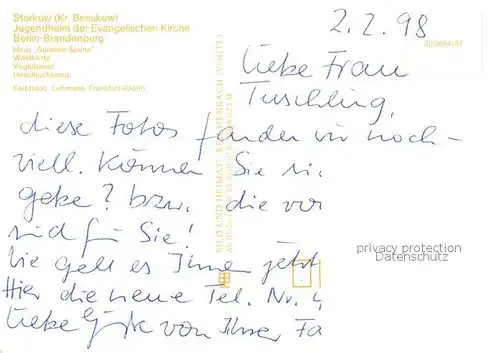 Storkow (Kr. Beeskow)
Jugendheim der Evangelischen Kirche
Berlin-Brandenburg
Haus
Waldhütte
Vogelbauer
Hirschluchkreuz
Farbfotos: Lehmann, Frankfurt (Oder)
BILD UND HEIMAT REICHENBACH (VOGTL)
2.2.98
Liebe Frau
Tuschling,
diese Fotos fanden wir noch –
viell. können Sie
? bzw. die
sind für Sie!
Wie geht es Ihnen jetzt
Hier die neue Tel. Nr.
Liebe Grüße von Ihrer Fa
privacy protection
Datenschutz